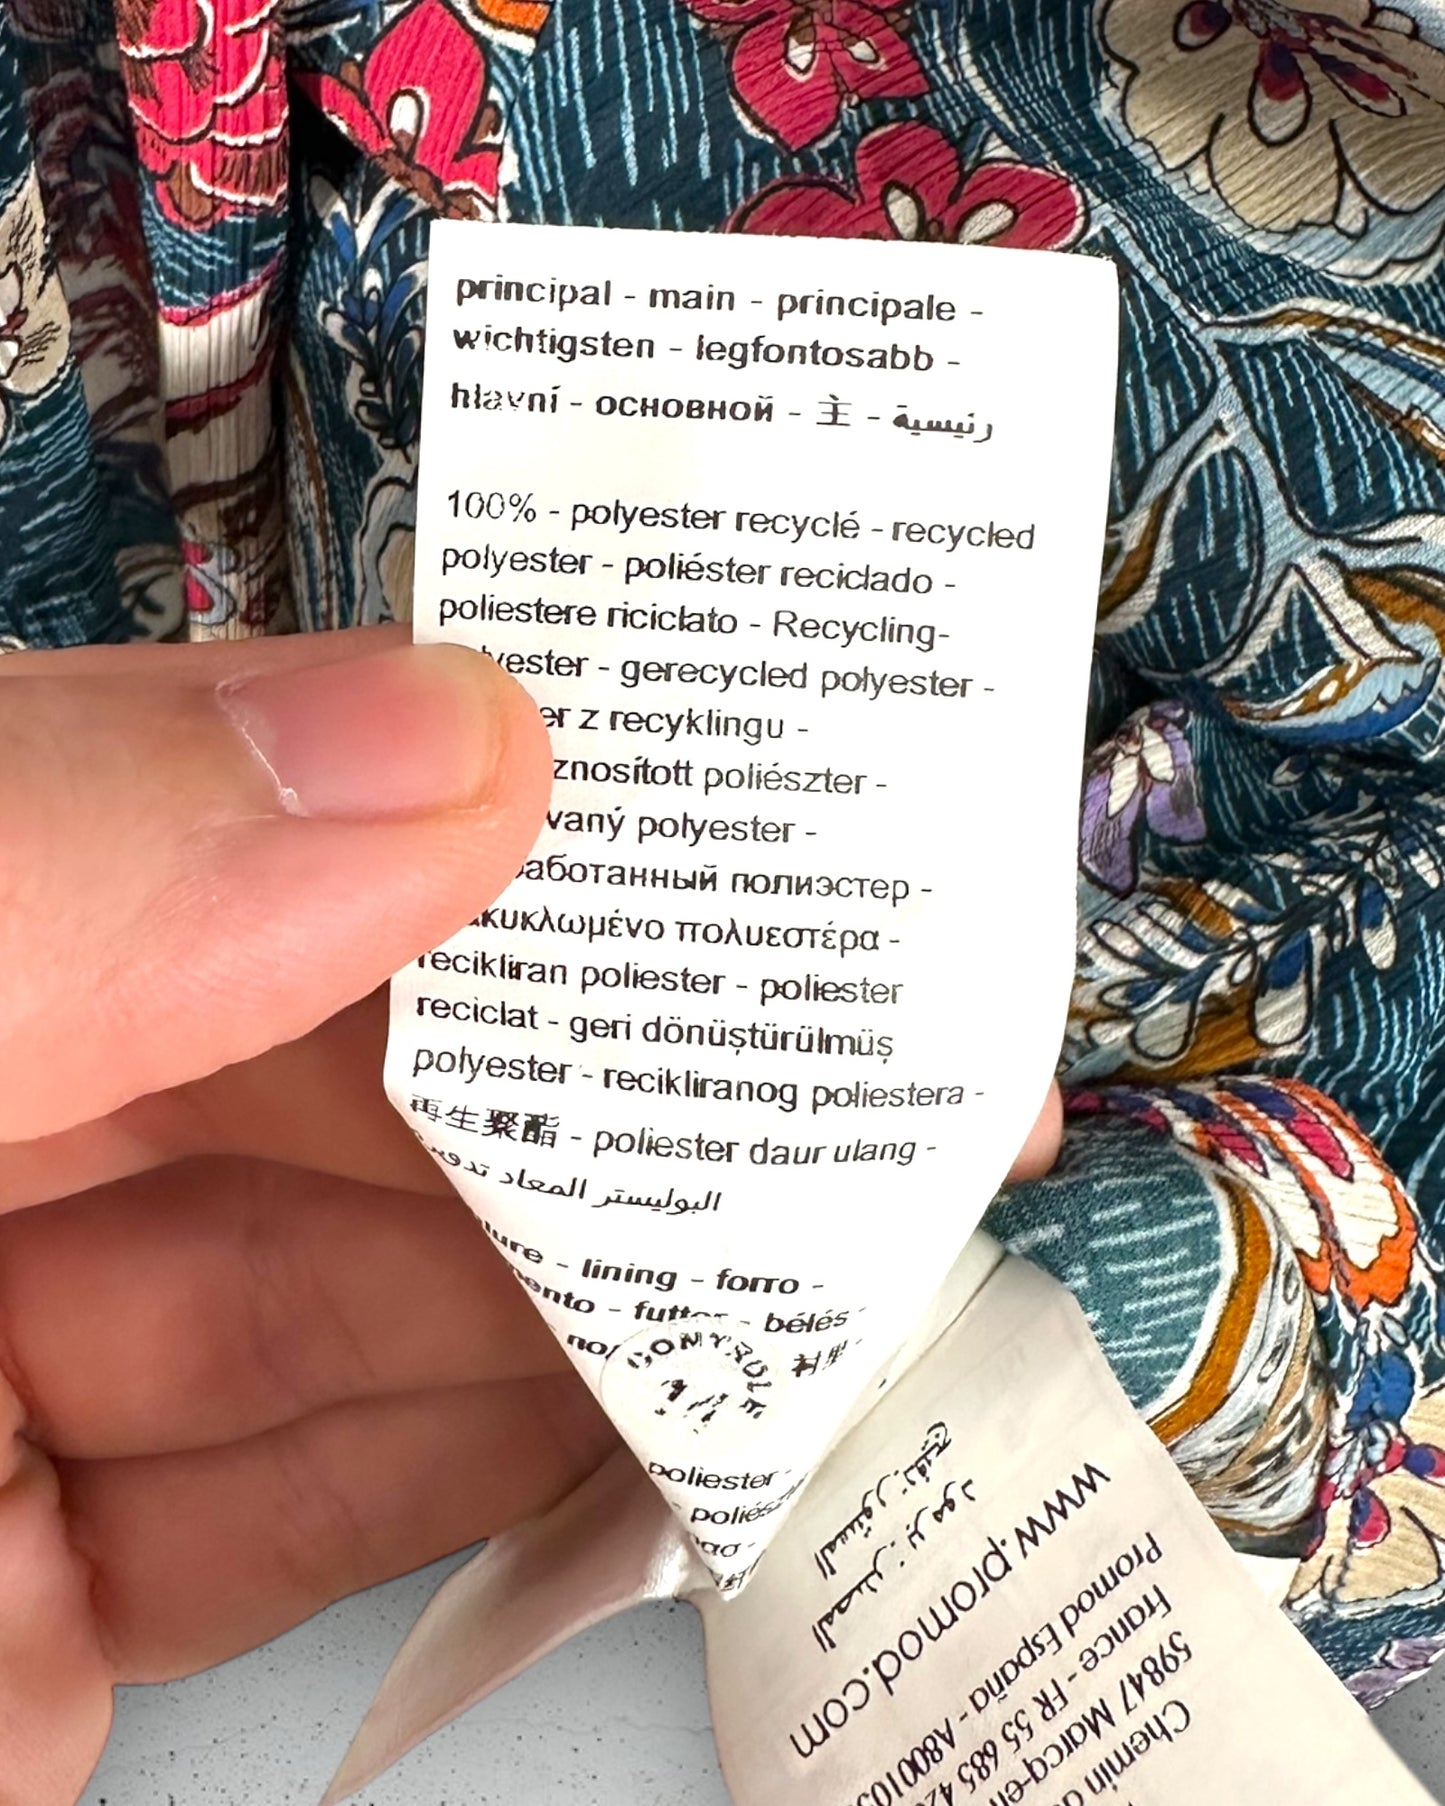 principal - main - principale -
wichtigsten - legfontosabb -
hlavní - основной - 主 - رئيسية
100% - polyester recyclé - recycled
polyester - poliéster reciclado -
poliestere riciclato - Recycling-
yester - gerecycled polyester -
er z recyklingu -
znosított poliészter -
vaný polyester -
аботанный полиэстер -
κυκλωμένο πολυεστέρα -
recikliran poliester - poliester
reciclat - geri dönüştürülmüş
polyester - recikliranog poliestera -
再生聚酯 - poliester daur ulang -
البوليستر المعاد
ure - lining - forro -
ento - - bélés
CONTROLE
poliester -
www.promod.com
Promod España -
France - FR 55 685
59847 Marcq-en
Chemin